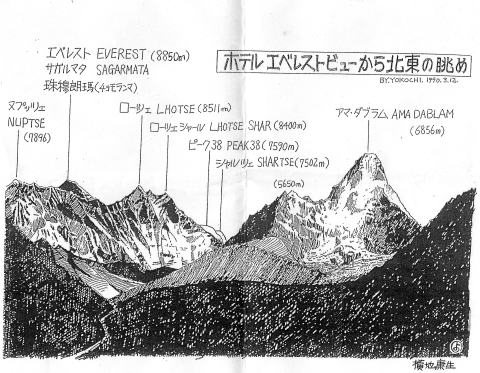 ホテル エベレストビューから北東の眺め
BY.YOKOCHI. 1990.3.12.
エベレスト EVEREST (8850m)
サガルマタ SAGARMATA
珠穆朗瑪(チョモランマ)
ヌプツェ
NUPTSE
(7896)
ローツェ LHOTSE (8511m)
ローツェ シャール LHOTSE SHAR (8400m)
ピーク38 PEAK38 (7590m)
シャルツェ SHARTSE (7502m)
(5650m)
アマ・ダブラム AMA DABLAM
(6856m)
横地康生